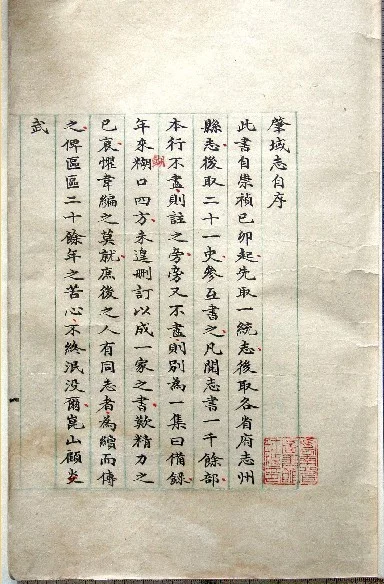 肇域志自序
此書自崇禎己卯起先取一統志後取各省府志州
縣志後取二十一史參互書之凡閱志書一千餘部
本行不盡則註之旁旁又不盡則別為一集曰備錄
年來糊口四方未遑刪訂以成一家之書歎精力之
已衰懼韋編之莫就庶後之人有同志者為續而傳
之俾區區二十餘年之苦心不終泯没爾崑山顧炎
武